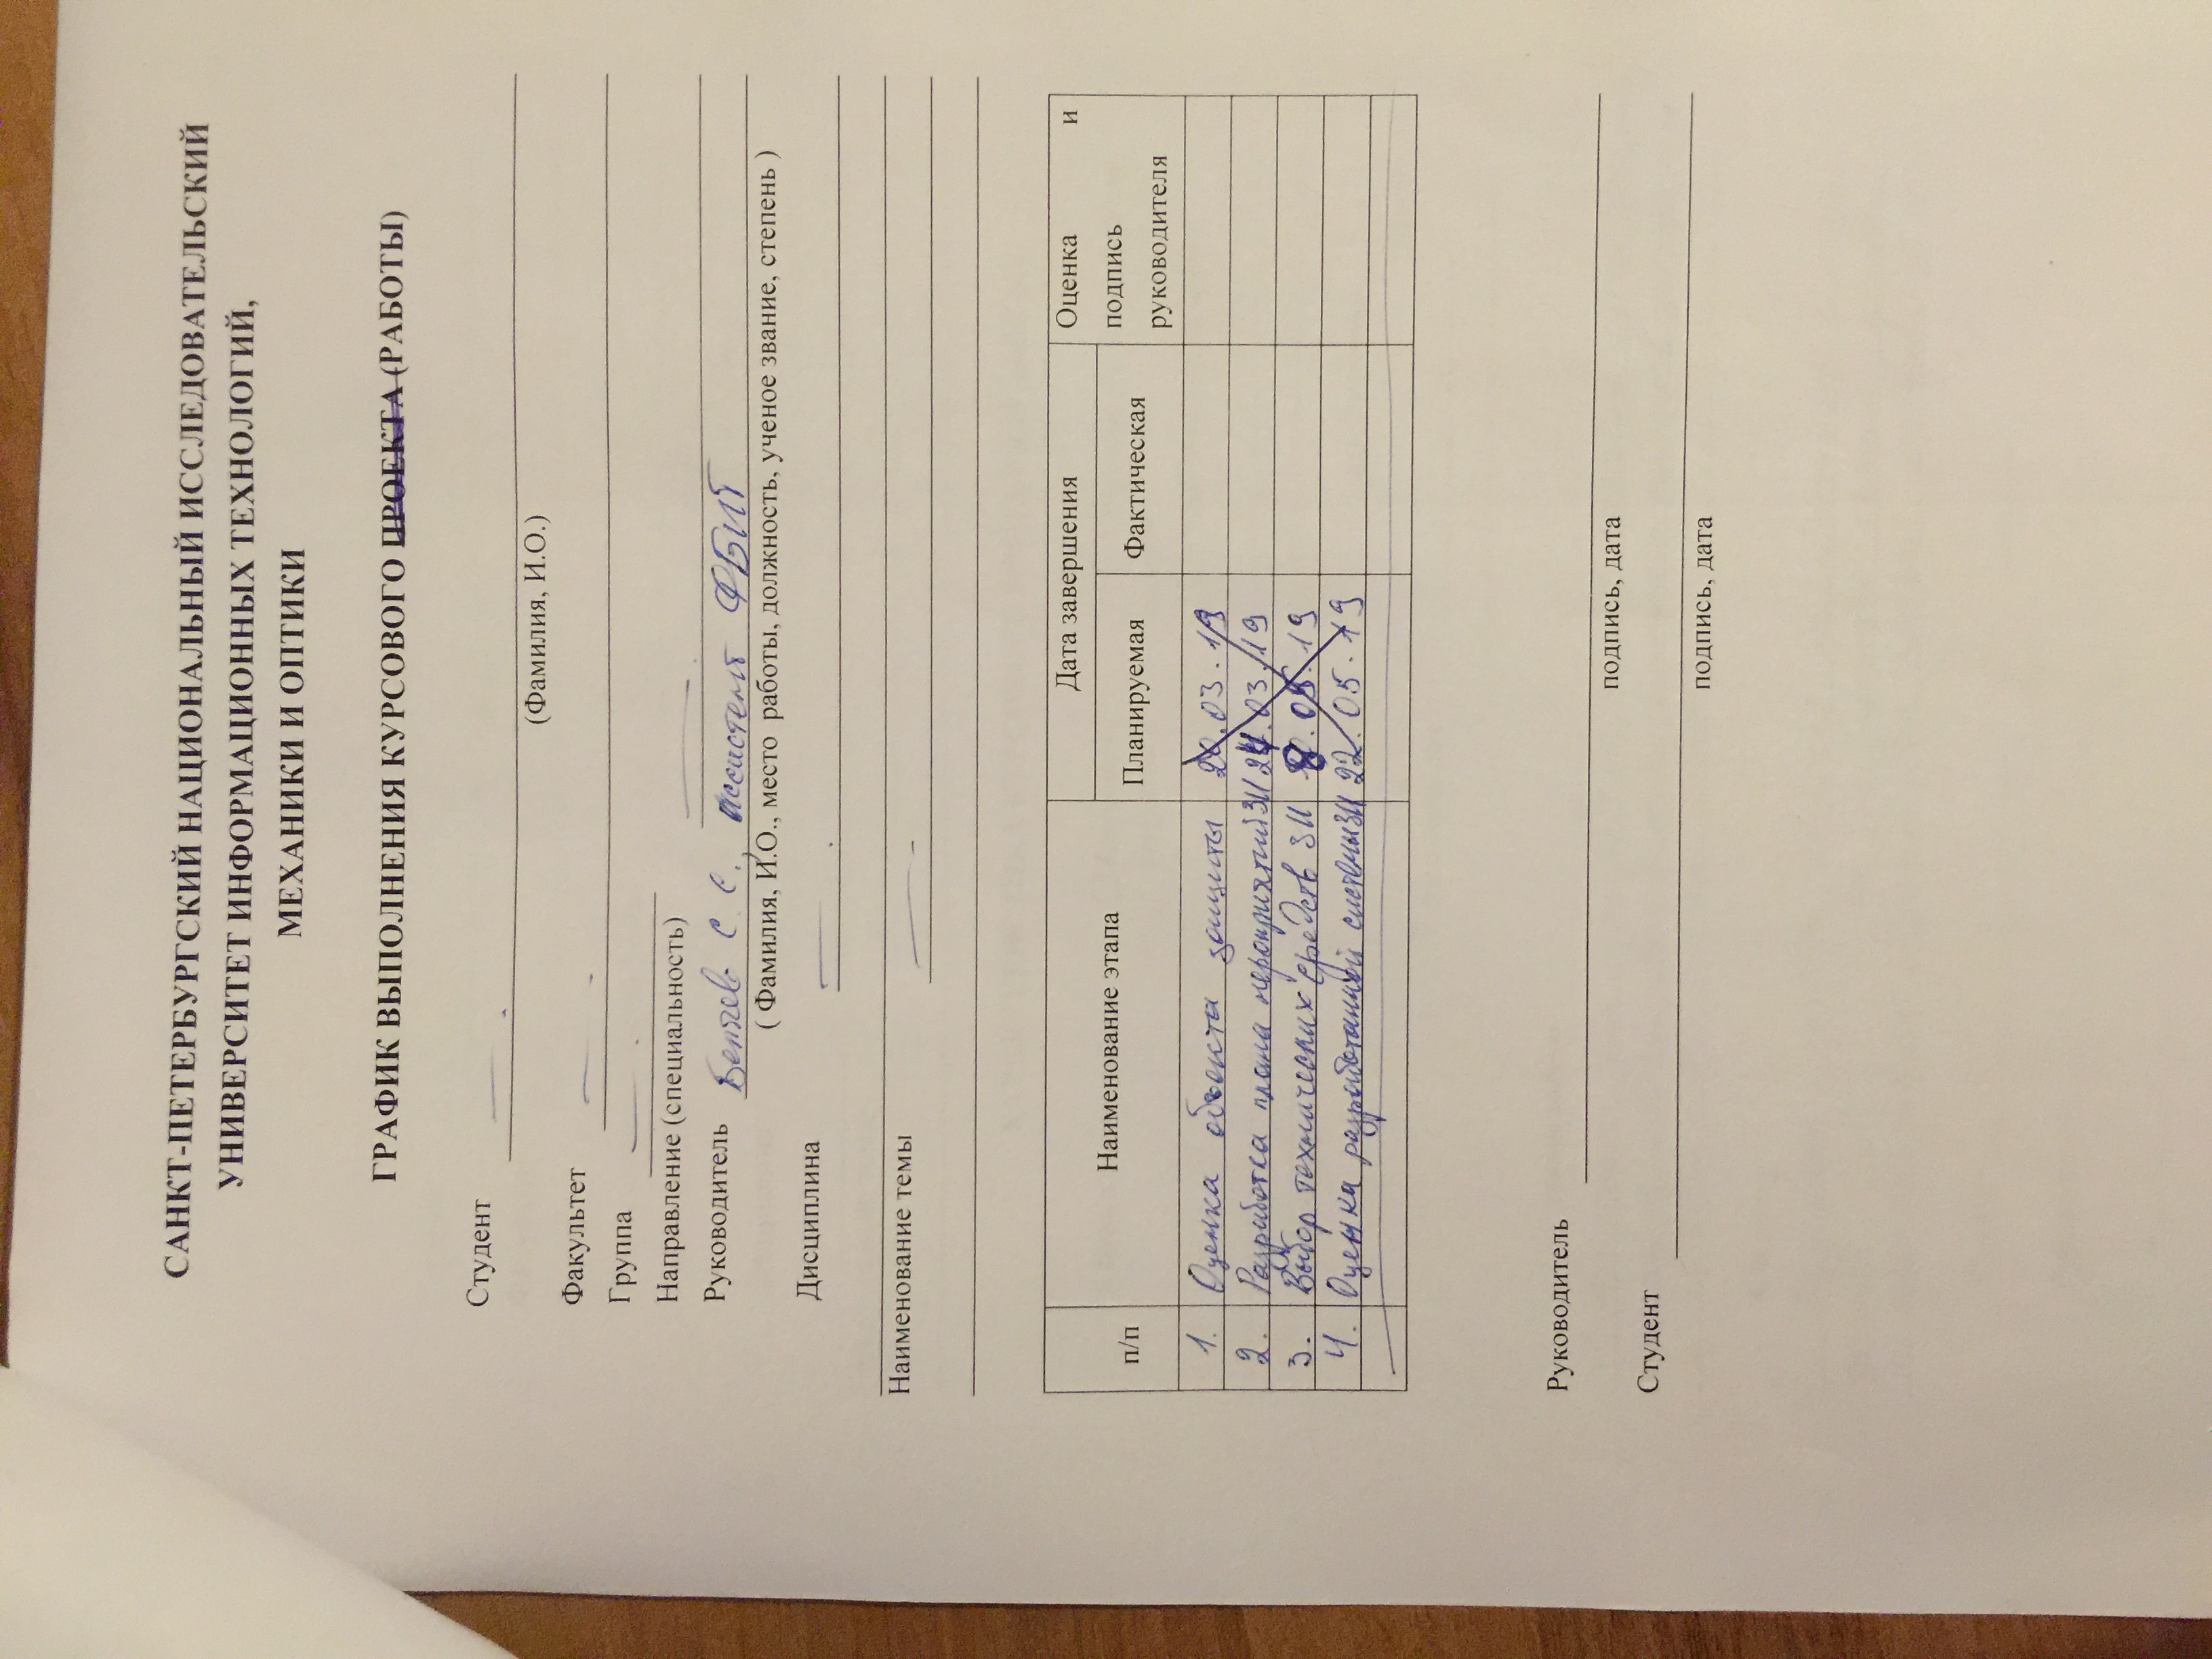 САНКТ-ПЕТЕРБУРГСКИЙ НАЦИОНАЛЬНЫЙ ИССЛЕДОВАТЕЛЬСКИЙ
УНИВЕРСИТЕТ ИНФОРМАЦИОННЫХ ТЕХНОЛОГИЙ,
МЕХАНИКИ И ОПТИКИ
ГРАФИК ВЫПОЛНЕНИЯ КУРСОВОГО ПРОЕКТА (РАБОТЫ)
Студент
(Фамилия, И.О.)
Факультет
Группа
Направление (специальность)
Руководитель С. С., Ассистент ФБИТ
( Фамилия, И.О., место работы, должность, ученое звание, степень )
Дисциплина
Наименование темы
п/п
Наименование этапа
Дата завершения
Планируемая
Фактическая
Оценка и
подпись
руководителя
1. Оценка объекта защиты 20.03.19
2. Разработка плана мероприятий ЗИ .03.19
3. Выбор технических средств ЗИ .05.19
4. Оценка разработанной системы ЗИ 22.05.19
Руководитель
подпись, дата
Студент
подпись, дата